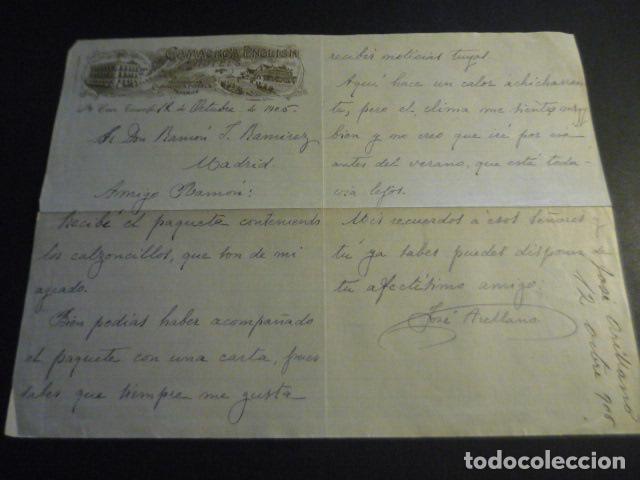 CAMACHO'S ENGLISH
Sta Cruz Tenerife 12 de Octubre de 1905.
Sr. Don Ramón T. Ramírez
Madrid.
Amigo Ramón:
Recibé el paquete conteniendo
los calzoncillos, que son de mi
agrado.
Bien podías haber acompañado
el paquete con una carta, pues
sabes que siempre me gusta
recibir noticias tuyas.
Aquí hace un calor achicharran-
te, pero el clima me sienta muy
bien y me creo que iré por esa
antes del verano, que está toda-
vía lejos.
Mis recuerdos á esos Señores
tú ya sabes puedes disponer
tu afectísimo amigo.
José Arellano
José Arellano
12 Octubre 905
todocoleccion.net